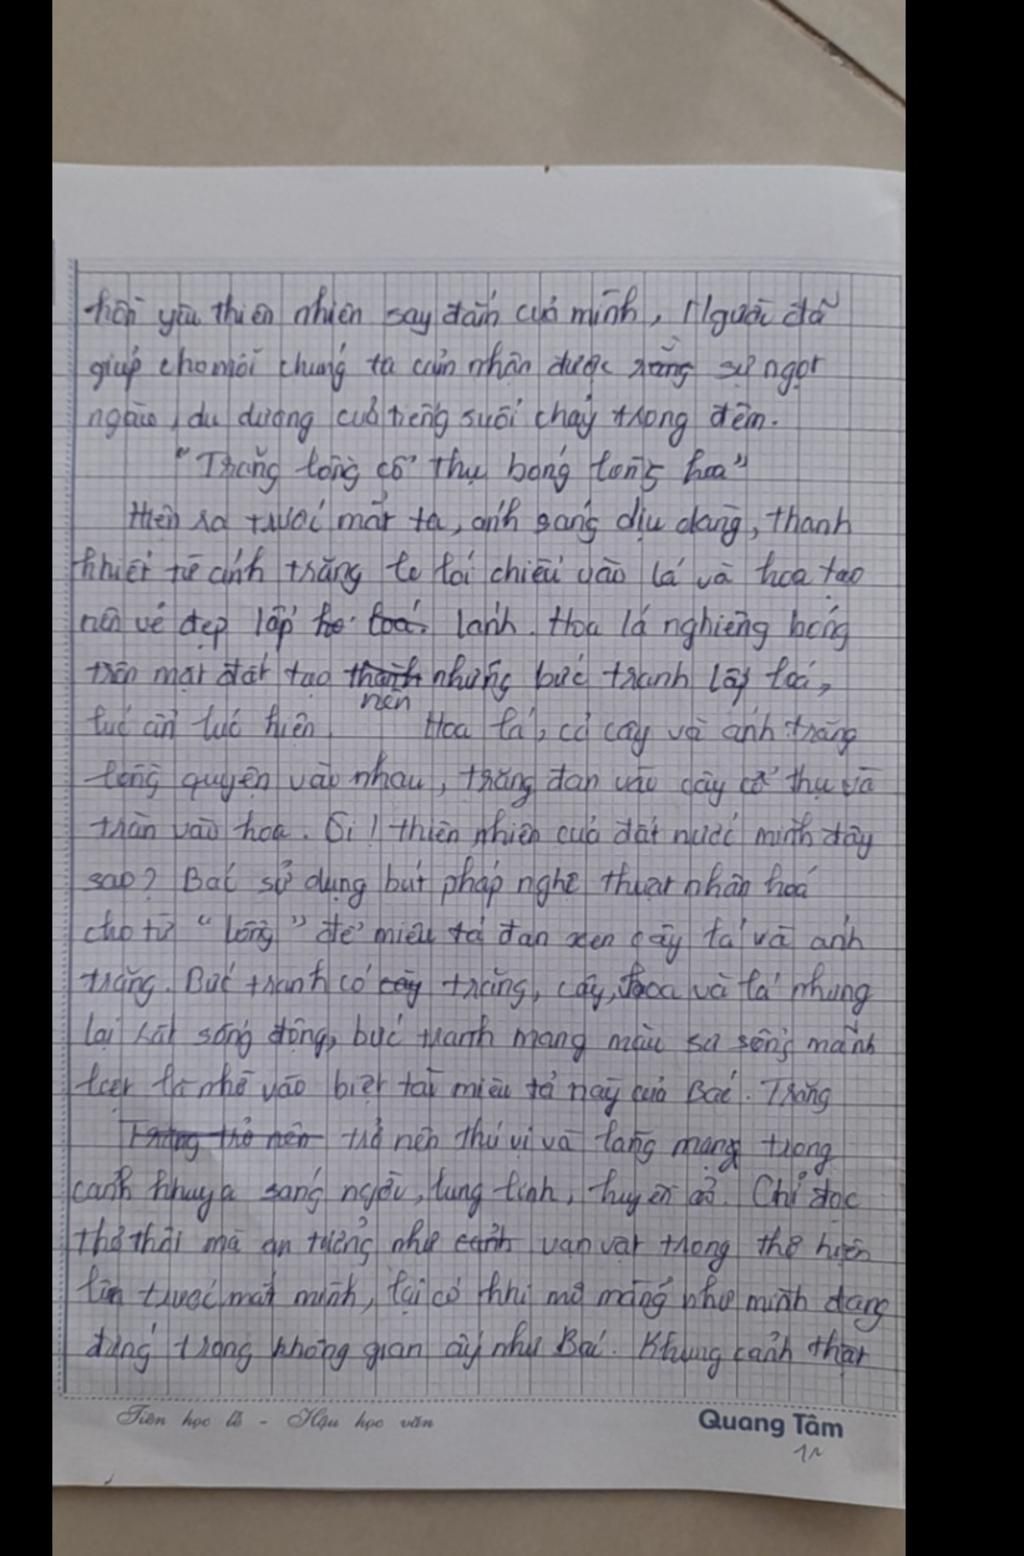 hồn yêu thiên nhiên say đắm của mình, Người đã
giúp cho mỗi chúng ta cảm nhận được rằng sự ngọt
ngào, du dương của tiếng suối chảy trong đêm.
"Trăng lồng cổ thụ bóng lồng hoa"
Hiện ra trước mắt ta, ánh sáng dịu dàng, thanh
khiết từ ánh trăng le lói chiếu vào lá và hoa tạo
nên vẻ đẹp lấp lánh. Hoa lá nghiêng bóng
trên mặt đất tạo thành nên những bức tranh lấp loá,
lúc ẩn lúc hiện. Hoa lá, cỏ cây và ánh trăng
lồng quyện vào nhau, trăng đan vào cây cổ thụ và
tràn vào hoa. Ôi! thiên nhiên của đất nước mình đây
sao? Bác sử dụng bút pháp nghệ thuật nhân hoá
cho từ "lồng" để miêu tả đan xen cây lá và ánh
trăng. Bức tranh có cây trăng, cây, hoa và lá nhưng
lại rất sống động, bức tranh mang màu sự sống mãnh
liệt là nhờ vào biệt tài miêu tả này của Bác. Trăng
Trăng trở nên trở nên thú vị và lãng mạng trong
cảnh khuya sáng ngời, lung linh, huyền ảo. Chỉ đọc
thơ thôi mà ấn tượng như cảnh vạn vật trong thơ hiện
lên trước mắt mình, lại có khi mơ màng như mình đang
đứng trong không gian ấy như Bác. Khung cảnh thật
Tiên học lễ - Hậu học văn
Quang Tâm